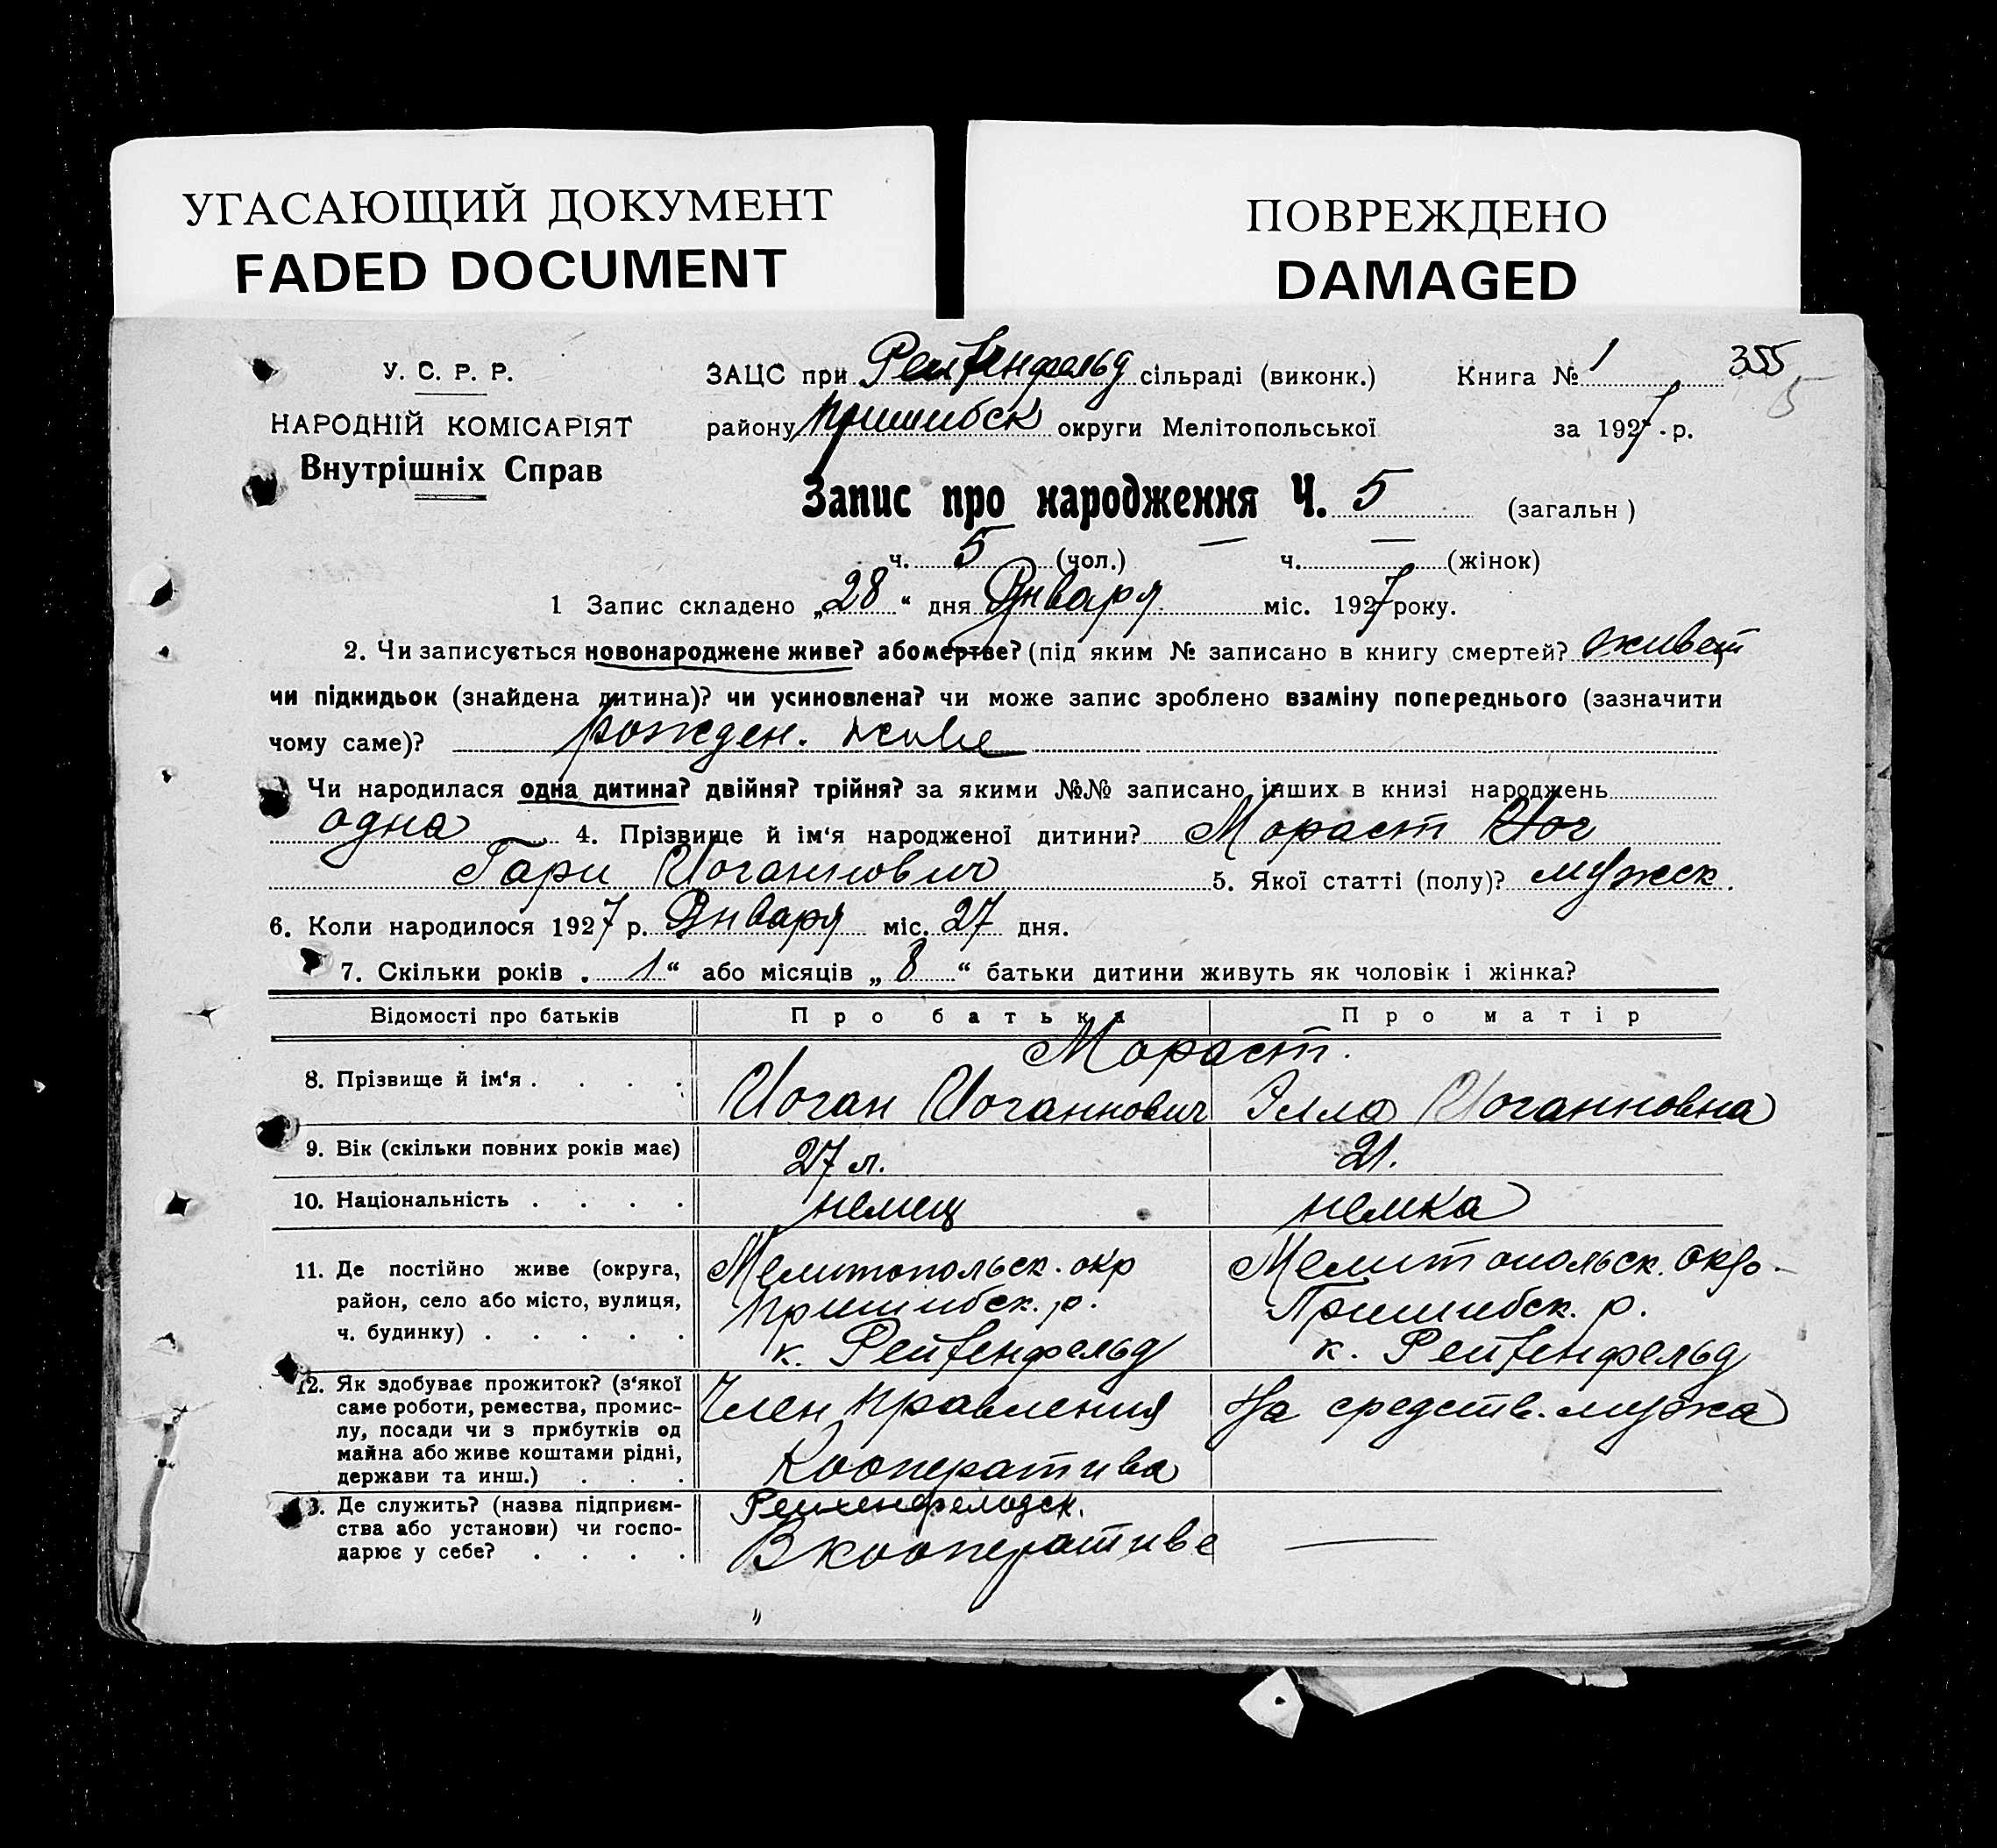 УГАСАЮЩИЙ ДОКУМЕНТ
FADED DOCUMENT
ПОВРЕЖДЕНО
DAMAGED
У. С. Р. Р.
НАРОДНІЙ КОМІСАРІЯТ
Внутрішніх Справ
ЗАЦС при Рейхенфельд сільраді (виконк.) Книга № 1 355
5
району Пришибск округи Мелітопольської за 1927 . р.
Запис про народження Ч. 5 (загальн )
ч. 5 (чол.) — ч. — (жінок)
1 Запис складено „28“ дня Января міс. 1927 року.
2. Чи записується новонароджене живе? або мертве? (під яким № записано в книгу смертей?
чи підкидьок (знайдена дитина)? чи усиновлена? чи може запис зроблено взаміну попереднього (зазначити
чому саме)? рожден. живе
Чи народилася одна дитина? двійня? трійня? за якими №№ записано інших в книзі народжень
одна 4. Прізвище й ім‘я народженої дитини? Мораст Иог
Гари Иоганнович 5. Якої статті (полу)? мужск.
6. Коли народилося 1927 р. Января міс. 27 дня.
7. Скільки років „ 1 “ або місяців „ 8 “ батьки дитини живуть як чоловік і жінка?
Відомості про батьків Про батька Про матір
Мораст.
8. Прізвище й ім‘я . . . . Иоган Иоганнович Элла Иоганновна
9. Вік (скільки повних років має) 27 л. 21.
10. Національність . . . . немец немка
11. Де постійно живе (округа, Мелитопольск. окр Мелитопольск. окр.
район, село або місто, вулиця, Пришибск. р. Пришибск. р.
ч. будинку) . . . . . к. Рейхенфельд к. Рейхенфельд
12. Як здобуває прожиток? (з‘якої Член правления На средств. мужа
саме роботи, ремества, промис-
лу, посади чи з прибутків од
майна або живе коштами рідні, Кооператива
держави та инш.) . . .
13. Де служить? (назва підприєм- Рейхенфельдск.
ства або установи) чи госпо- В кооперативе —
дарює у себе? . . . .